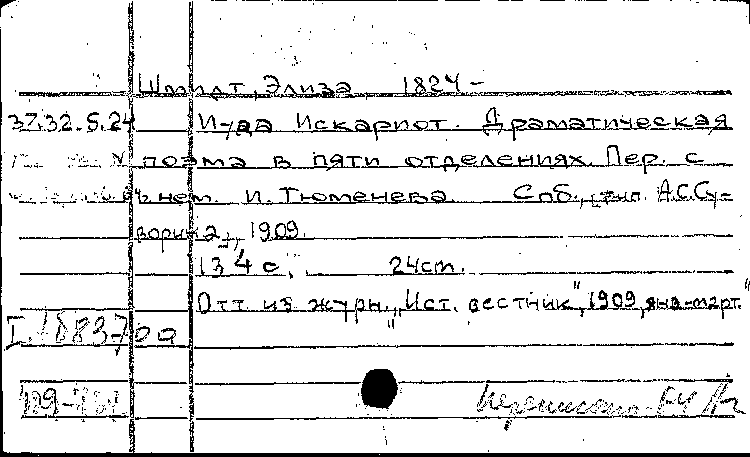 Шмидт, Элиза 1824 -
37.32.5.24 Иуда Искариот. Драматическая
поэма в пяти отделениях. Пер. с
нем. И. Тюменева. Спб., тип. А.С.Су-
ворина, 1909.
134 с. 24 cm.
Отт. из журн. „Ист. вестник", 1909, янв-март."